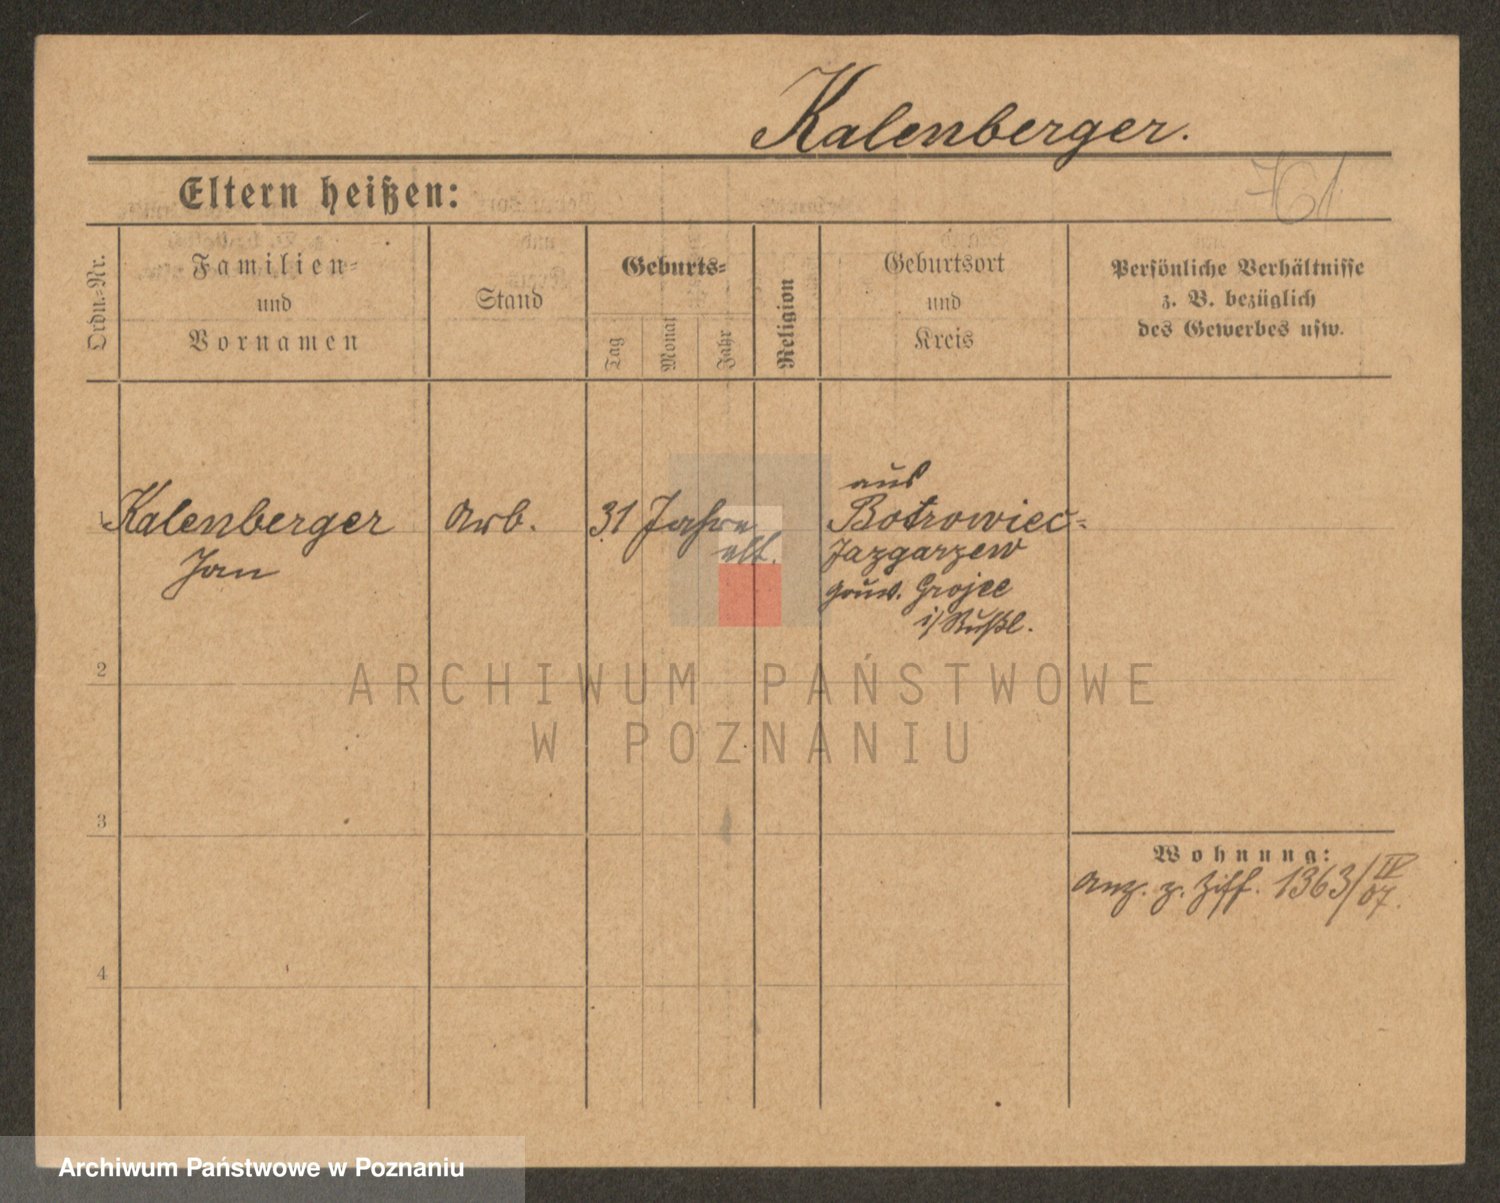 Kalenberger.
761
Eltern heißen:
Ordn.-Nr.
Familien-
und
Vornamen
Stand
Geburts-
Tag
Monat
Jahr
Religion
Geburtsort
und
Kreis
Persönliche Verhältnisse
z. B. bezüglich
des Gewerbes usw.
1
Kalenberger
Jan
Arb.
31 Jahre
alt.
aus
Botrowiec-
Jazgarzew
Gouv. Grojec
i/Rußl.
2
3
4
Wohnung:
Anz. z. Ziff. 1363/IV 07.
ARCHIWUM PAŃSTWOWE
W POZNANIU
Archiwum Państwowe w Poznaniu